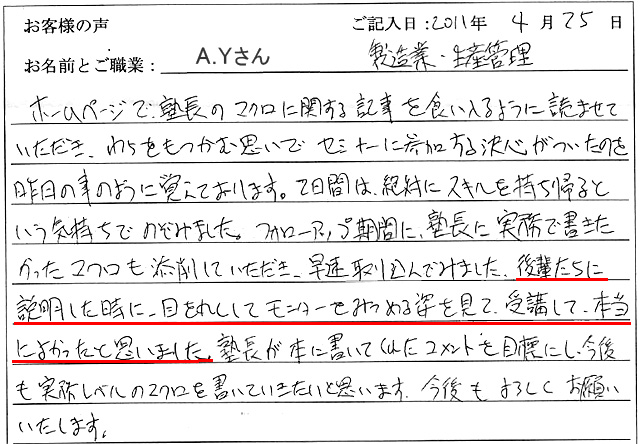 お客様の声 ご記入日:2011年 4月 25日
お名前とご職業: A.Yさん 製造業・生産管理
ホームページで、塾長のマクロに関する記事を食い入るように読ませて
いただき、わらをもつかむ思いでセミナーに参加する決心がついたのを
昨日の事のように覚えております。2日間は、絶対にスキルを持ち帰ると
いう気持ちでのぞみました。フォローアップ期間に、塾長に実務で書きた
かったマクロも添削していただき、早速取り込んでみました。後輩たちに
説明した時に、目を丸くしてモニターをみつめる姿を見て、受講して、本当
によかったと思いました。塾長が本に書いてくれたコメントを目標にし、今後
も実務レベルのマクロを書いていきたいと思います。今後もよろしくお願い
いたします。